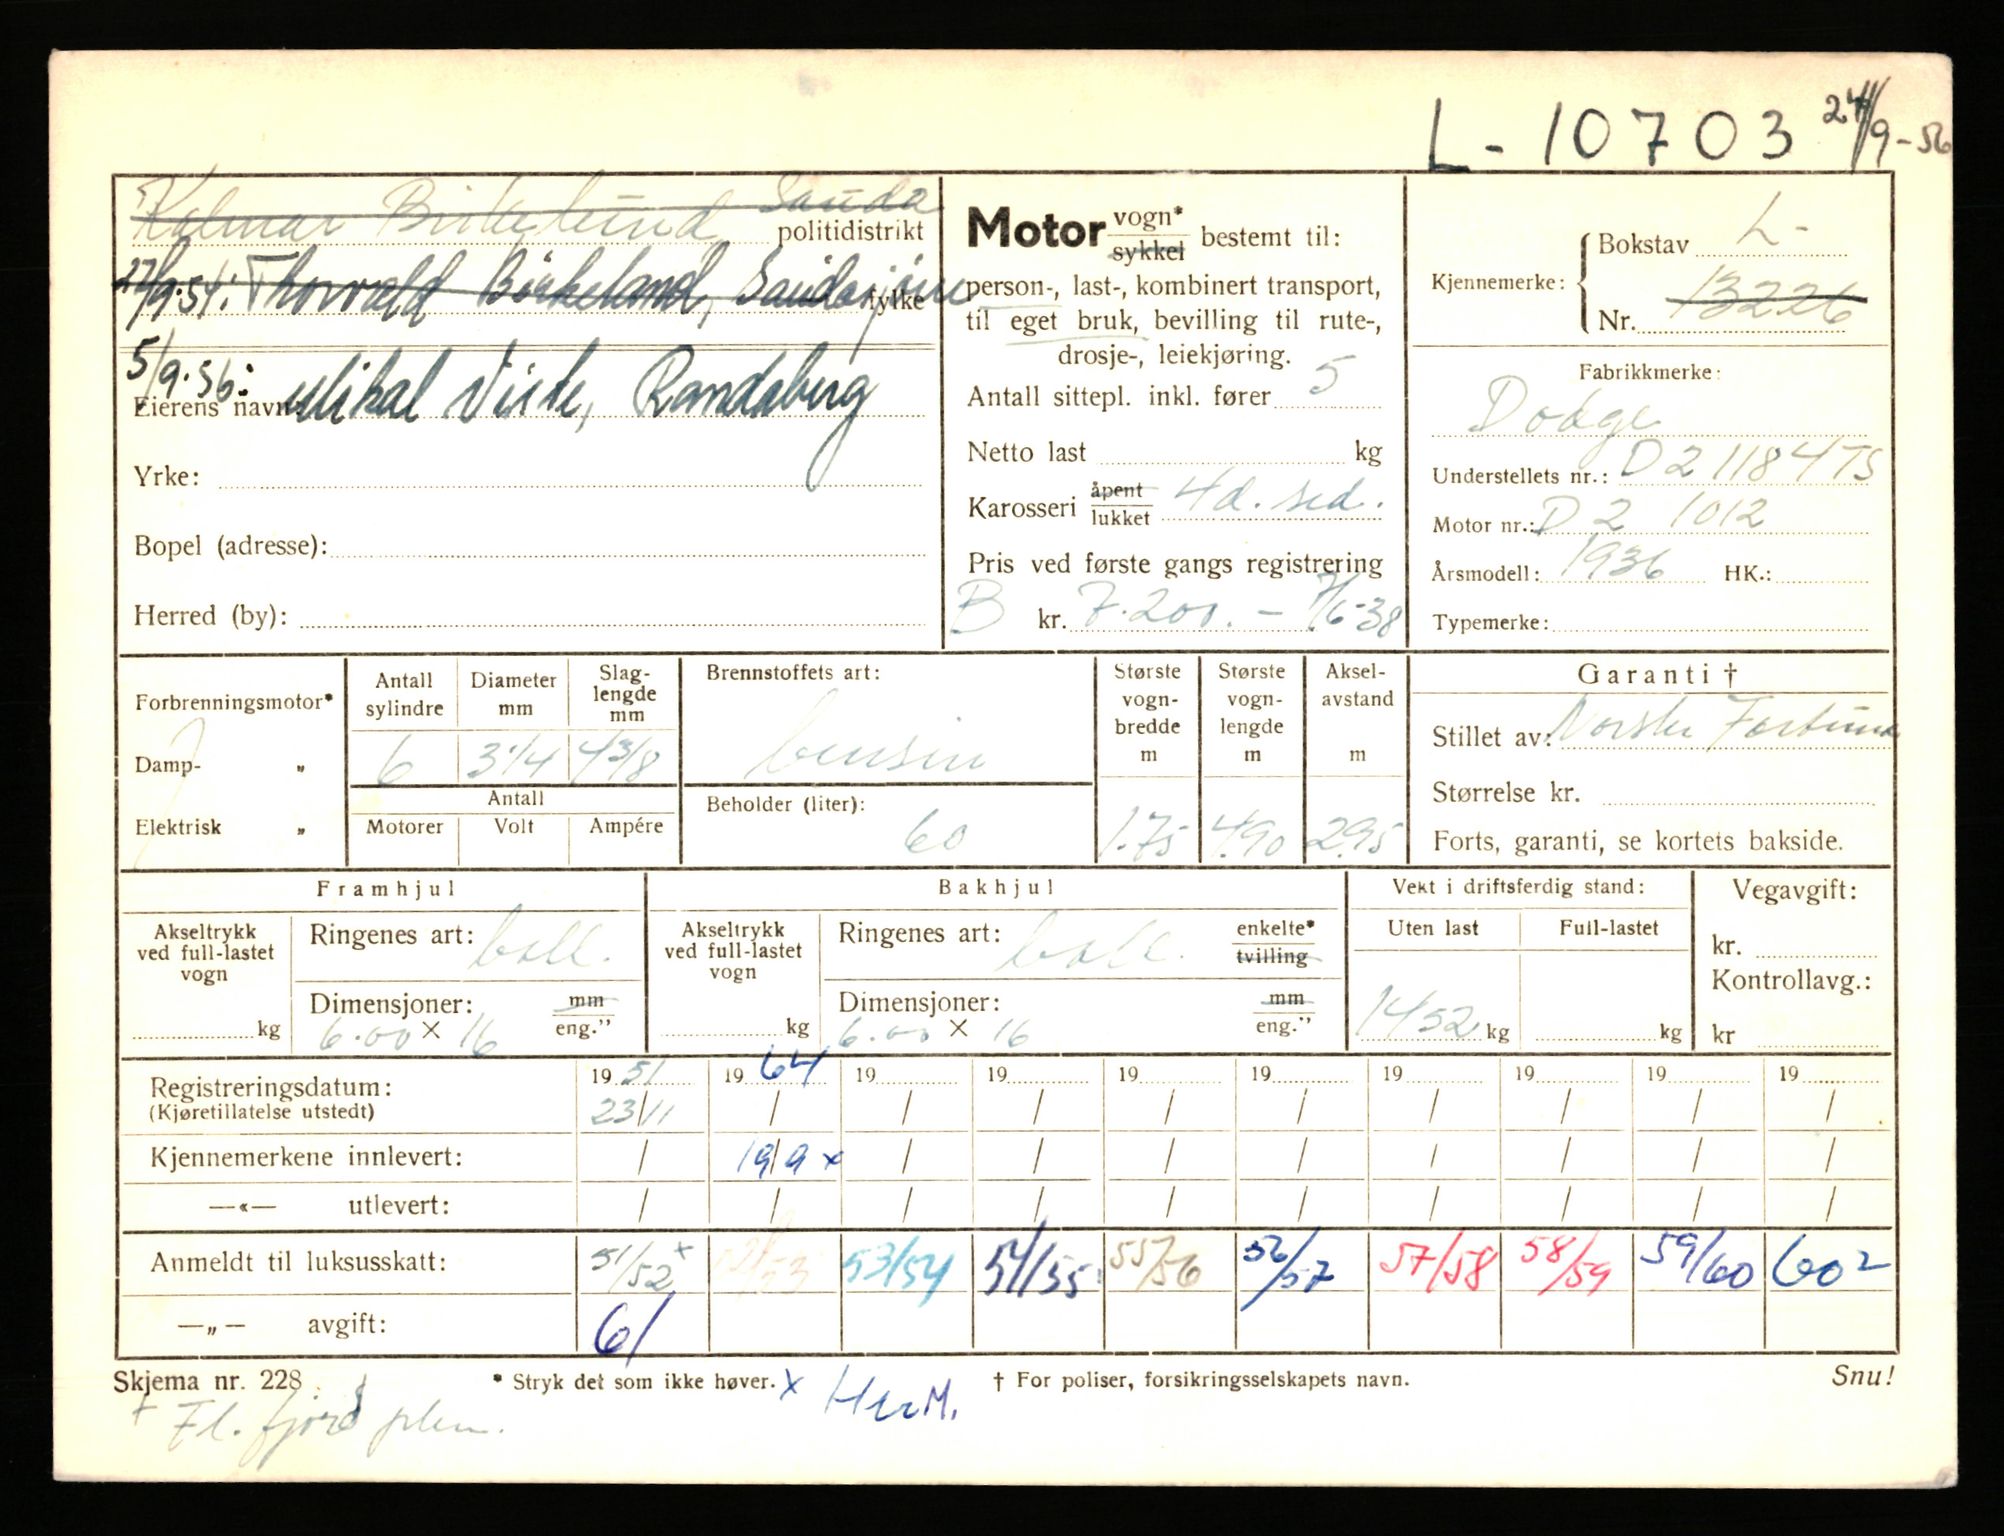 L - 10703 24/9-56
Kalmar Birkeland Sauda
politidistrikt
27/9.54: Thorvald Birkeland, Saudasjøen
fylke
5/9.56: Mikal Viste, Randaberg
Eierens navn:
Yrke:
Bopel (adresse):
Herred (by):
Motor vogn* / sykkel bestemt til:
person-, last-, kombinert transport,
til eget bruk, bevilling til rute-,
drosje-, leiekjøring.
Antall sittepl. inkl. fører 5
Netto last kg
Karosseri åpent / lukket 4d. sed.
Pris ved første gangs registrering
B kr. 7.200.- 7/6-38
Kjennemerke: Bokstav L-
Nr. 13226
Fabrikkmerke:
Dodge
Understellets nr.: D2 11847S
Motor nr.: D2 1012
Årsmodell: 1936 HK.:
Typemerke:
Forbrenningsmotor*
Damp- „
Elektrisk „
Antall sylindre 6
Diameter mm 3 1/4
Slag-lengde mm 4 3/8
Antall
Motorer Volt Ampére
Brennstoffets art:
bensin
Beholder (liter):
60
Største vogn-bredde m 1.75
Største vogn-lengde m 4.90
Aksel-avstand m 2.95
Garanti †
Stillet av: Norske Fortuna
Størrelse kr.
Forts, garanti, se kortets bakside.
Framhjul
Akseltrykk ved full-lastet vogn
kg
Ringenes art: ball.
Dimensjoner: mm / eng.”
6.00 × 16
Bakhjul
Akseltrykk ved full-lastet vogn
kg
Ringenes art: ball. enkelte* / tvilling
Dimensjoner: mm / eng.”
6.00 × 16
Vekt i driftsferdig stand:
Uten last Full-lastet
1452 kg kg
Vegavgift:
kr.
Kontrollavg.:
kr
Registreringsdatum: 19 51 19 64 19 19 19 19 19 19 19 19
(Kjøretillatelse utstedt) 23/11 / / / / / / / / /
Kjennemerkene innlevert: / 19/9 x / / / / / / / /
—«— utlevert: / / / / / / / / / /
Anmeldt til luksusskatt: 51/52 x 52/53 53/54 54/55 55/56 56/57 57/58 58/59 59/60 60 2
—„— avgift: 61
Skjema nr. 228 * Stryk det som ikke høver. x HerM. † For poliser, forsikringsselskapets navn. Snu!
+ Fl. fjord